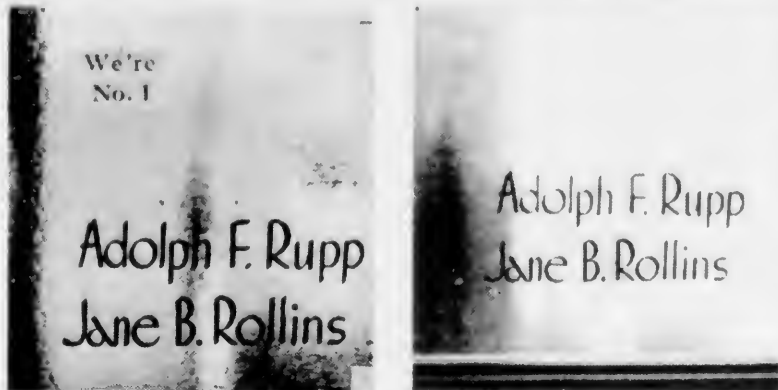 We're
No. 1
Adolph F. Rupp
Jane B. Rollins
Adolph F. Rupp
Jane B. Rollins